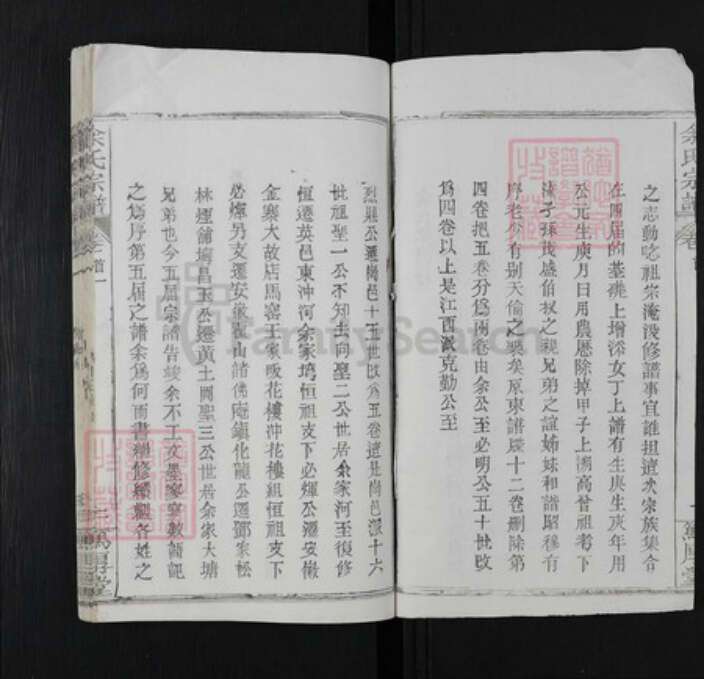 余氏宗譜
卷首
之志動唸祖宗淹没修譜事宜誰担這次宗族集合
在四届的基礎上增添女丁上譜有生庚生庚年用
公元生庚月日用農歷除掉甲子上溯高曾祖考下
淸子孫茂盛伯叔之親兄弟之誼姊妹和諧昭穆有
序老少有别天倫之樂矣原東譜廢十二卷删除第
四卷把五卷分爲兩卷由余公至必明公五十世改
爲四卷以上是江西派克勤公至
烈縣公遷崗邑十五世改爲五卷這是崗邑派十六
世祖聖一公不知去向聖二公世居余家河至復修
恒遷英邑東沖河余家塆恒祖支下必輝公遷安徽
金寨大故店馬窑王家畈花樓沖花樓組恒祖支下
必煇男支遷安徽霍山諸佛庵鎮化龍公遷鄧家松
林煙舖塆昌玉公遷黄土岡聖三公世居余家大塘
兄弟也今五届宗譜告竣余不工文墨寥寥數語記
之爲序第五届之譜余爲何而書纘修續編各姓之
余氏宗譜
卷首一
二
FamilySearch